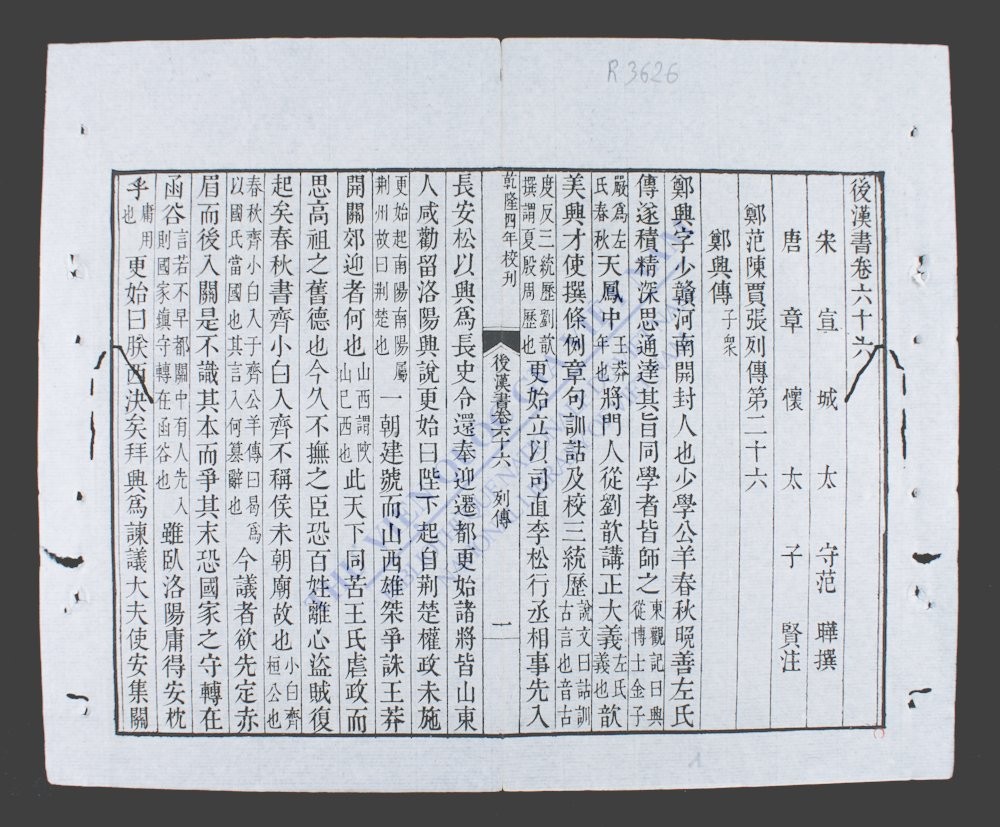 R 3626
後漢書卷六十六
宋宣城太守范曄撰
唐章懷太子賢注
鄭范陳賈張列傳第二十六
鄭興傳子衆
鄭興字少贛河南開封人也少學公羊春秋晚善左氏
傳遂積精深思通達其旨同學者皆師之東觀記曰興從博士金子
嚴爲左氏春秋天鳳中王莽年也將門人從劉歆講正大義左氏義也歆
美興才使撰條例章句訓詁及校三統歷說文曰詁訓古言也音古
度反三統歷劉歆撰謂夏殷周歷也更始立以司直李松行丞相事先入
乾隆四年校刊
後漢書卷六十六 列傳 一
長安松以興爲長史令還奉迎遷都更始諸將皆山東
人咸勸留洛陽興說更始曰陛下起自荆楚權政未施
更始起南陽南陽屬荆州故曰荆楚也一朝建號而山西雄桀爭誅王莽
開關郊迎者何也山西謂陜山已西也此天下同苦王氏虐政而
思高祖之舊德也今久不撫之臣恐百姓離心盜賊復
起矣春秋書齊小白入齊不稱侯未朝廟故也小白齊桓公也
春秋齊小白入于齊公羊傳曰曷爲以國氏當國也其言入何篡辭也今議者欲先定赤
眉而後入關是不識其本而爭其末恐國家之守轉在
函谷言若不早都關中有人先入則國家鎮守轉在函谷也雖臥洛陽庸得安枕
乎庸用也更始曰朕西決矣拜興爲諫議大夫使安集關
THE VIEN QUOC GIA VIET NAM
BIBLIOTHEQUE NATIONALE DU VIETNAM
NATIONAL LIBRARY OF VIETNAM